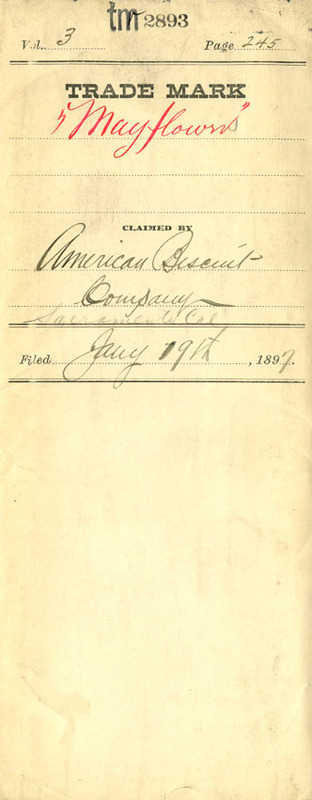 tm 2893
Vol. 3 Page 245
TRADE MARK
"Mayflower"
CLAIMED BY
American Biscuit
Company
Sacramento Cal
Filed Jany 19th, 1897.